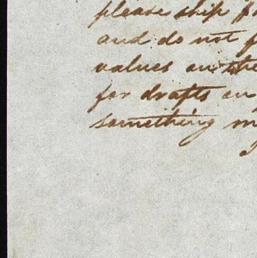 please ship f
and do not f
values on the
for drafts on
something m